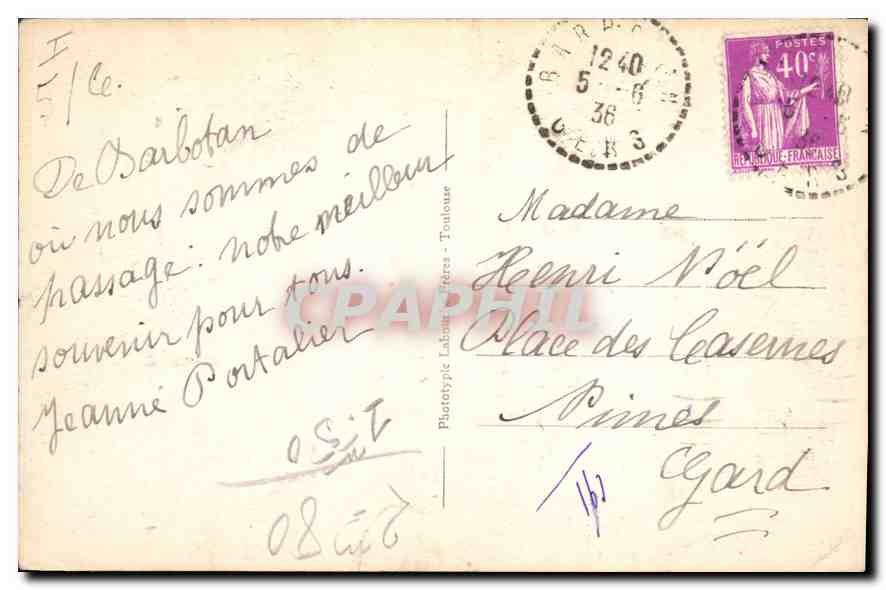 I
5/Ce.
De Barbotan
où nous sommes de
passage. notre meilleur
souvenir pour tous.
Jeanne Portalier
1,50
2,80
Phototypie Labouche Frères - Toulouse
12 40
5 - 6
36
GERS
POSTES
40c
REPUBLIQUE-FRANÇAISE
Madame
Henri Nöel
Place des Casernes
Nimes
Gard
CPAPHIL